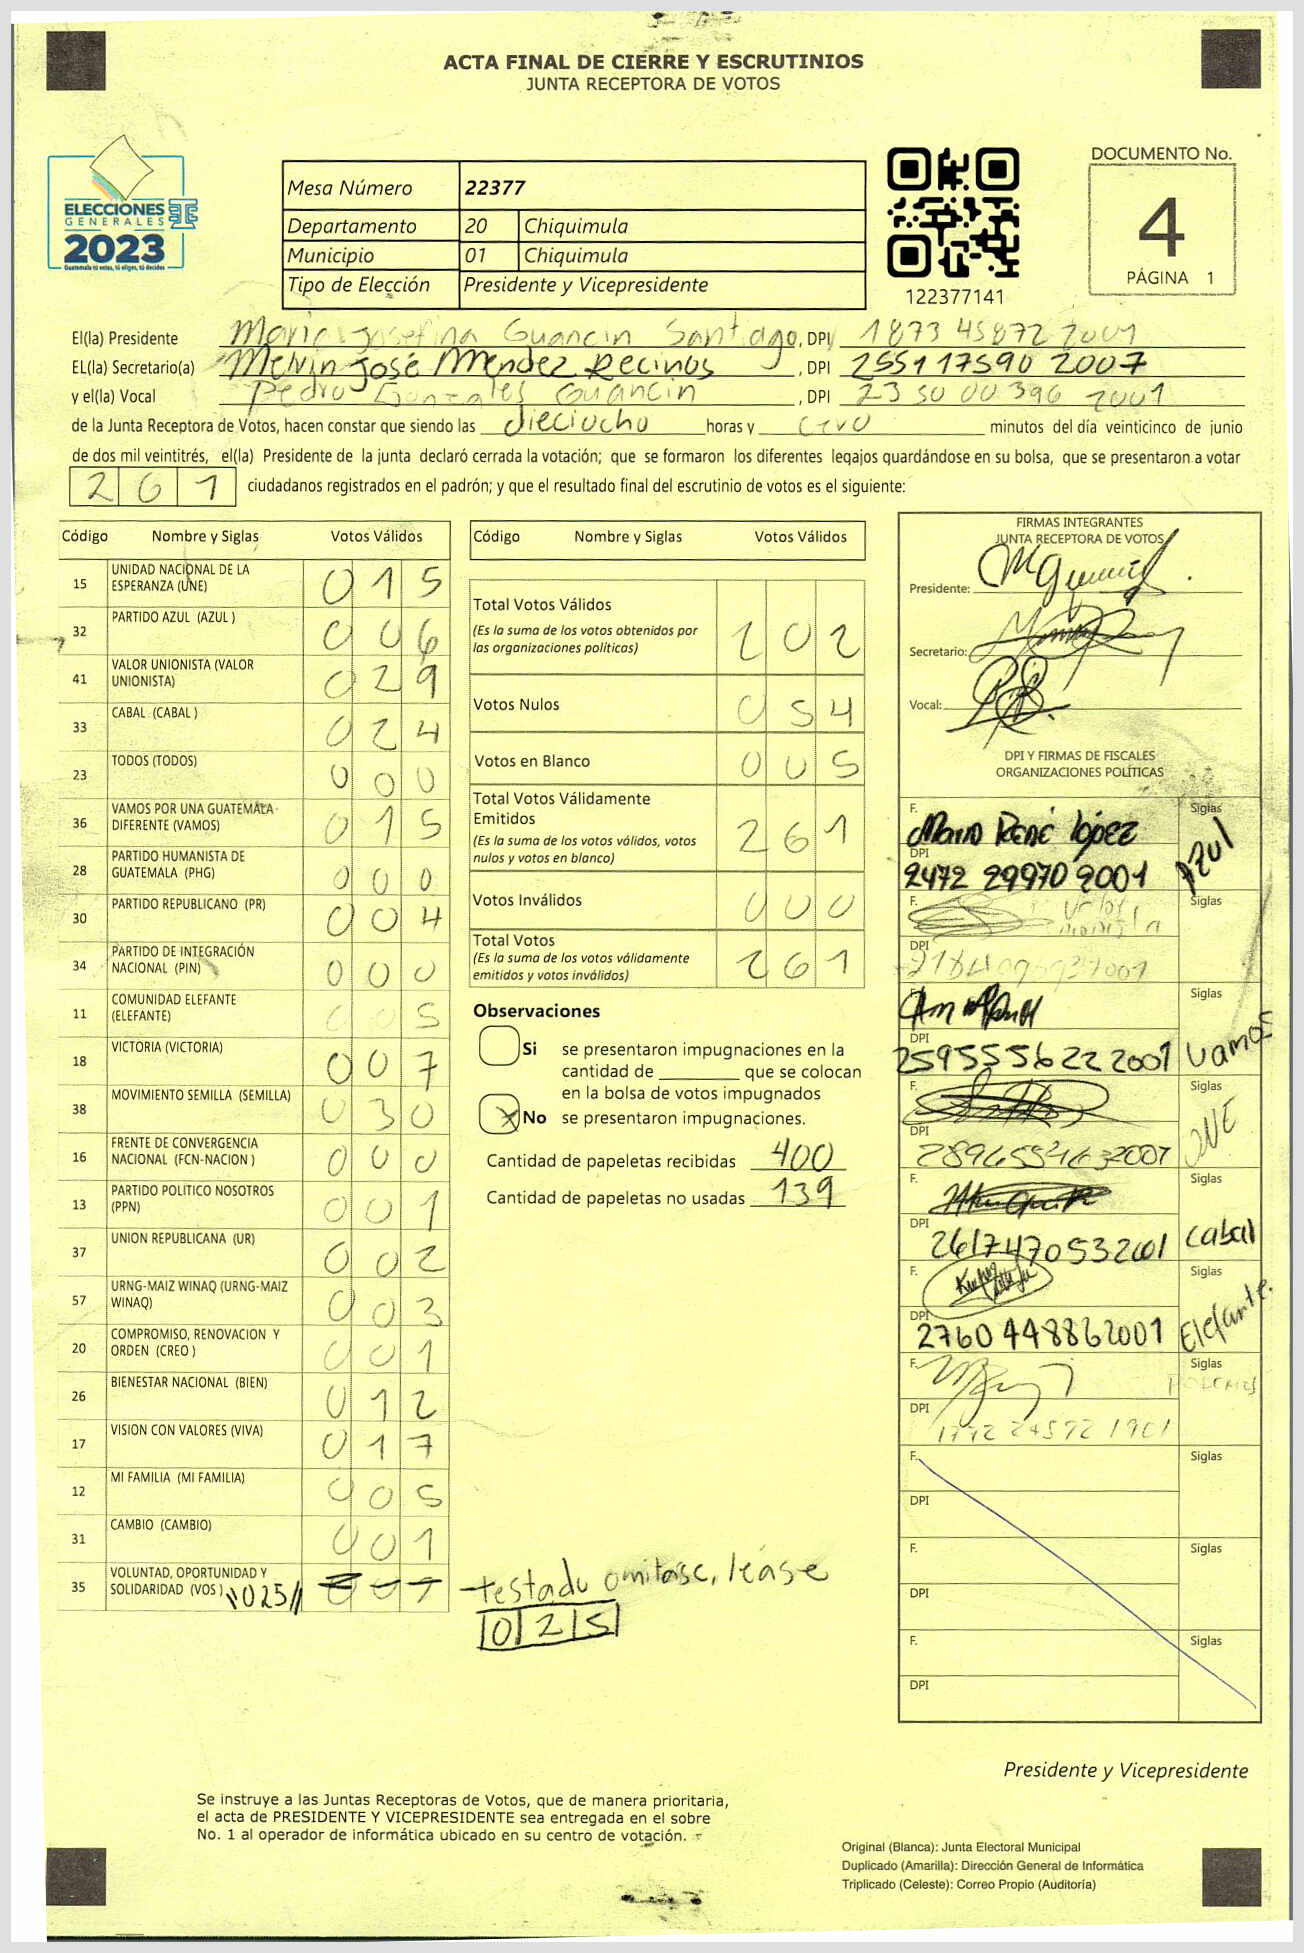 ACTA FINAL DE CIERRE Y ESCRUTINIOS
JUNTA RECEPTORA DE VOTOS
ELECCIONES
GENERALES
2023
Guatemala tú votas, tú eliges, tú decides
Mesa Número 22377
Departamento 20 Chiquimula
Municipio 01 Chiquimula
Tipo de Elección Presidente y Vicepresidente
122377141
DOCUMENTO No.
4
PÁGINA 1
El(la) Presidente Maria Josefina Guancin Santiago, DPI 1873 45872 2001
EL(la) Secretario(a) Melvin José Méndez Recinos, DPI 2551 17590 2007
y el(la) Vocal Pedro Gonzales Guancin, DPI 23 50 00 396 2001
de la Junta Receptora de Votos, hacen constar que siendo las dieciocho horas y cero minutos del día veinticinco de junio
de dos mil veintitrés, el(la) Presidente de la junta declaró cerrada la votación; que se formaron los diferentes legajos guardándose en su bolsa, que se presentaron a votar
261 ciudadanos registrados en el padrón; y que el resultado final del escrutinio de votos es el siguiente:
Código Nombre y Siglas Votos Válidos
15 UNIDAD NACIONAL DE LA ESPERANZA (UNE) 015
32 PARTIDO AZUL (AZUL ) 006
41 VALOR UNIONISTA (VALOR UNIONISTA) 029
33 CABAL (CABAL ) 024
23 TODOS (TODOS) 000
36 VAMOS POR UNA GUATEMALA DIFERENTE (VAMOS) 015
28 PARTIDO HUMANISTA DE GUATEMALA (PHG) 000
30 PARTIDO REPUBLICANO (PR) 004
34 PARTIDO DE INTEGRACIÓN NACIONAL (PIN) 000
11 COMUNIDAD ELEFANTE (ELEFANTE) 005
18 VICTORIA (VICTORIA) 007
38 MOVIMIENTO SEMILLA (SEMILLA) 030
16 FRENTE DE CONVERGENCIA NACIONAL (FCN-NACION ) 000
13 PARTIDO POLITICO NOSOTROS (PPN) 001
37 UNION REPUBLICANA (UR) 002
57 URNG-MAIZ WINAQ (URNG-MAIZ WINAQ) 003
20 COMPROMISO, RENOVACION Y ORDEN (CREO ) 001
26 BIENESTAR NACIONAL (BIEN) 012
17 VISION CON VALORES (VIVA) 017
12 MI FAMILIA (MI FAMILIA) 005
31 CAMBIO (CAMBIO) 001
35 VOLUNTAD, OPORTUNIDAD Y SOLIDARIDAD (VOS ) \\025//
testado omitase, léase
025
Código Nombre y Siglas Votos Válidos
Total Votos Válidos 202
(Es la suma de los votos obtenidos por las organizaciones políticas)
Votos Nulos 054
Votos en Blanco 005
Total Votos Válidamente Emitidos 261
(Es la suma de los votos válidos, votos nulos y votos en blanco)
Votos Inválidos 000
Total Votos 261
(Es la suma de los votos válidamente emitidos y votos inválidos)
Observaciones
Si se presentaron impugnaciones en la
cantidad de ________ que se colocan
en la bolsa de votos impugnados
X No se presentaron impugnaciones.
Cantidad de papeletas recibidas 400
Cantidad de papeletas no usadas 139
FIRMAS INTEGRANTES
JUNTA RECEPTORA DE VOTOS
Presidente:
Secretario:
Vocal:
DPI Y FIRMAS DE FISCALES
ORGANIZACIONES POLÍTICAS
F. Mario René López Siglas Azul
DPI 2472 29970 2001
F. Siglas
DPI
F. Siglas Vamos
DPI 259555622 2001
F. Siglas UNE
DPI
F. Siglas Cabal
DPI 2617470532001
F. Siglas Elefante.
DPI 2760 448862001
F. Siglas
DPI
F. Siglas
DPI
F. Siglas
DPI
F. Siglas
DPI
Presidente y Vicepresidente
Se instruye a las Juntas Receptoras de Votos, que de manera prioritaria,
el acta de PRESIDENTE Y VICEPRESIDENTE sea entregada en el sobre
No. 1 al operador de informática ubicado en su centro de votación.
Original (Blanca): Junta Electoral Municipal
Duplicado (Amarilla): Dirección General de Informática
Triplicado (Celeste): Correo Propio (Auditoría)